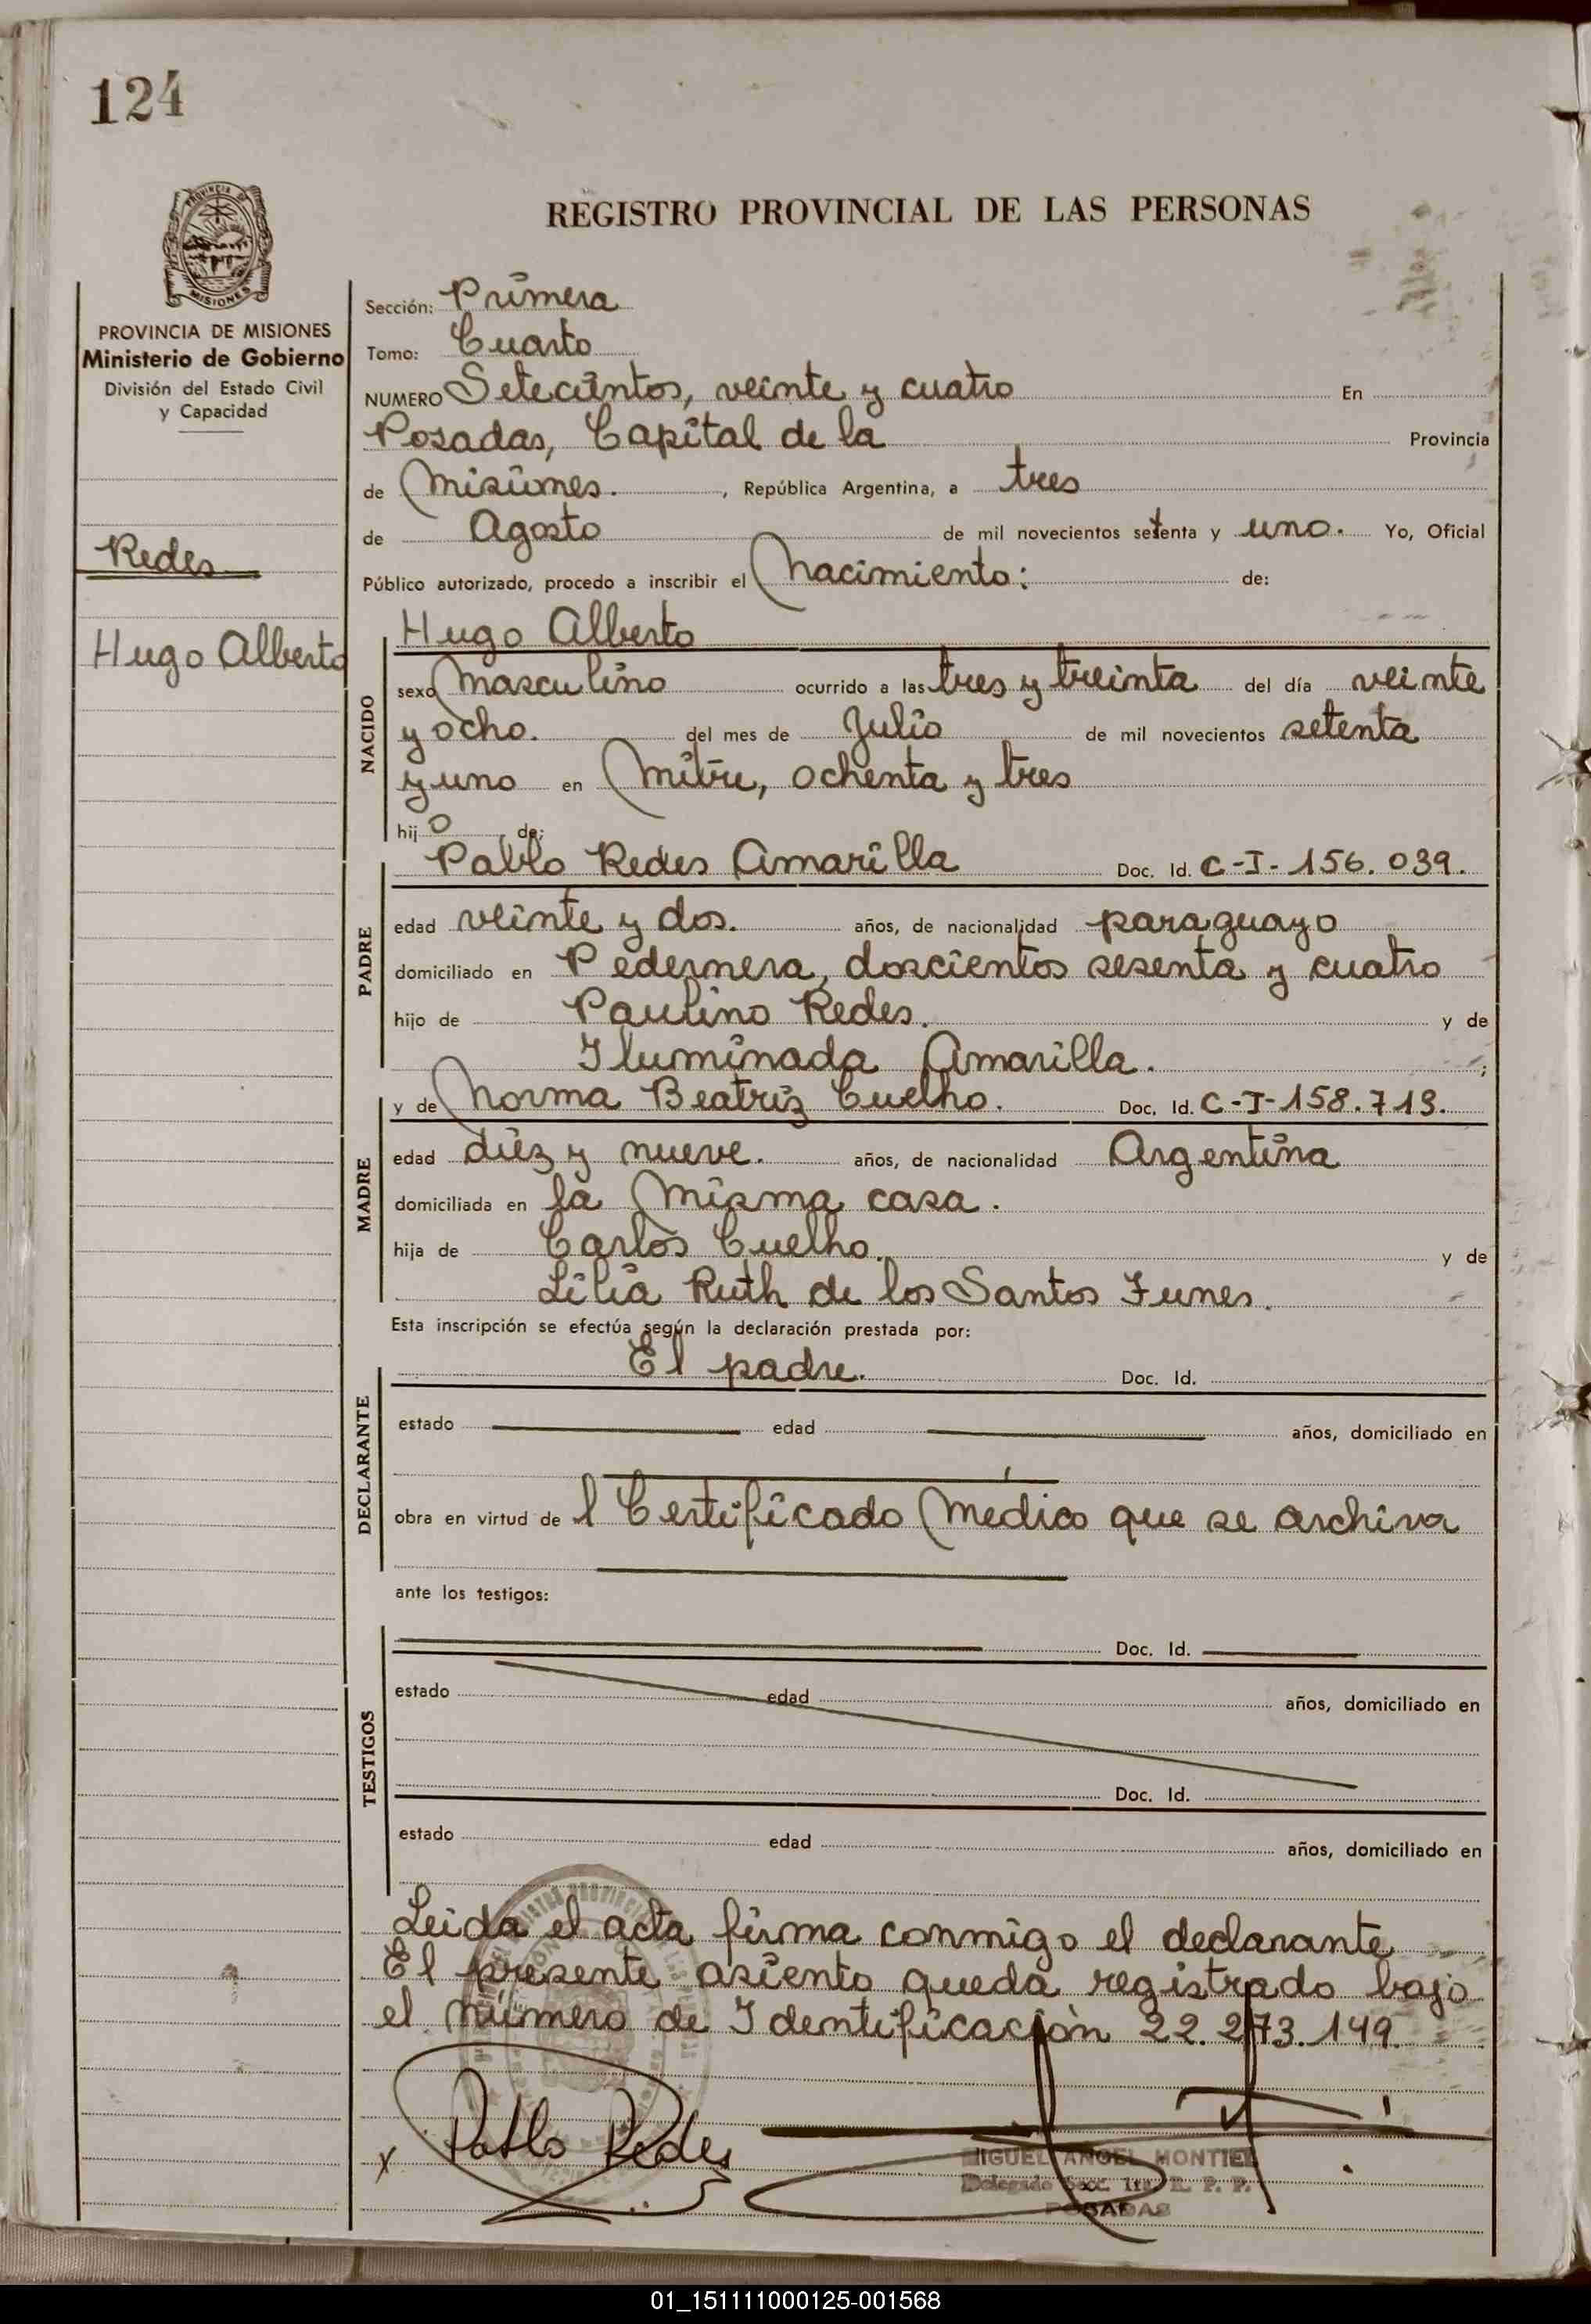 124
REGISTRO PROVINCIAL DE LAS PERSONAS
PROVINCIA DE MISIONES
Ministerio de Gobierno
División del Estado Civil
y Capacidad
Redes
Hugo Alberto
Sección: Primera
Tomo: Cuarto
NUMERO Setecientos, veinte y cuatro En
Posadas, Capital de la Provincia
de Misiones. , República Argentina, a tres
de Agosto de mil novecientos setenta y uno. Yo, Oficial
Público autorizado, procedo a inscribir el Nacimiento: de:
NACIDO
Hugo Alberto
sexo Masculino ocurrido a las tres y treinta del día veinte
y ocho. del mes de Julio de mil novecientos setenta
y uno en Mitre, ochenta y tres
hij o de:
PADRE
Pablo Redes Amarilla Doc. Id. C-I-156.039.
edad veinte y dos. años, de nacionalidad paraguayo
domiciliado en Pedernera, doscientos sesenta y cuatro
hijo de Paulino Redes. y de
Iluminada Amarilla. ;
MADRE
y de Norma Beatriz Cuelho. Doc. Id. C-I-158.719.
edad diez y nueve. años, de nacionalidad Argentina
domiciliada en la Misma casa.
hija de Carlos Cuelho. y de
Lilia Ruth de los Santos Funes.
Esta inscripción se efectúa según la declaración prestada por:
DECLARANTE
El padre. Doc. Id.
estado edad años, domiciliado en
obra en virtud de l Certificado Medico que se archiva
ante los testigos:
TESTIGOS
Doc. Id.
estado edad años, domiciliado en
Doc. Id.
estado edad años, domiciliado en
Leida el acta firma conmigo el declarante
El presente asiento queda registrado bajo
el número de Identificación 22.273.149.
x Pablo Redes
MIGUEL ANGEL MONTIEL
Delegado Secc. 1ra. R. P. P.
POSADAS
01_151111000125-001568